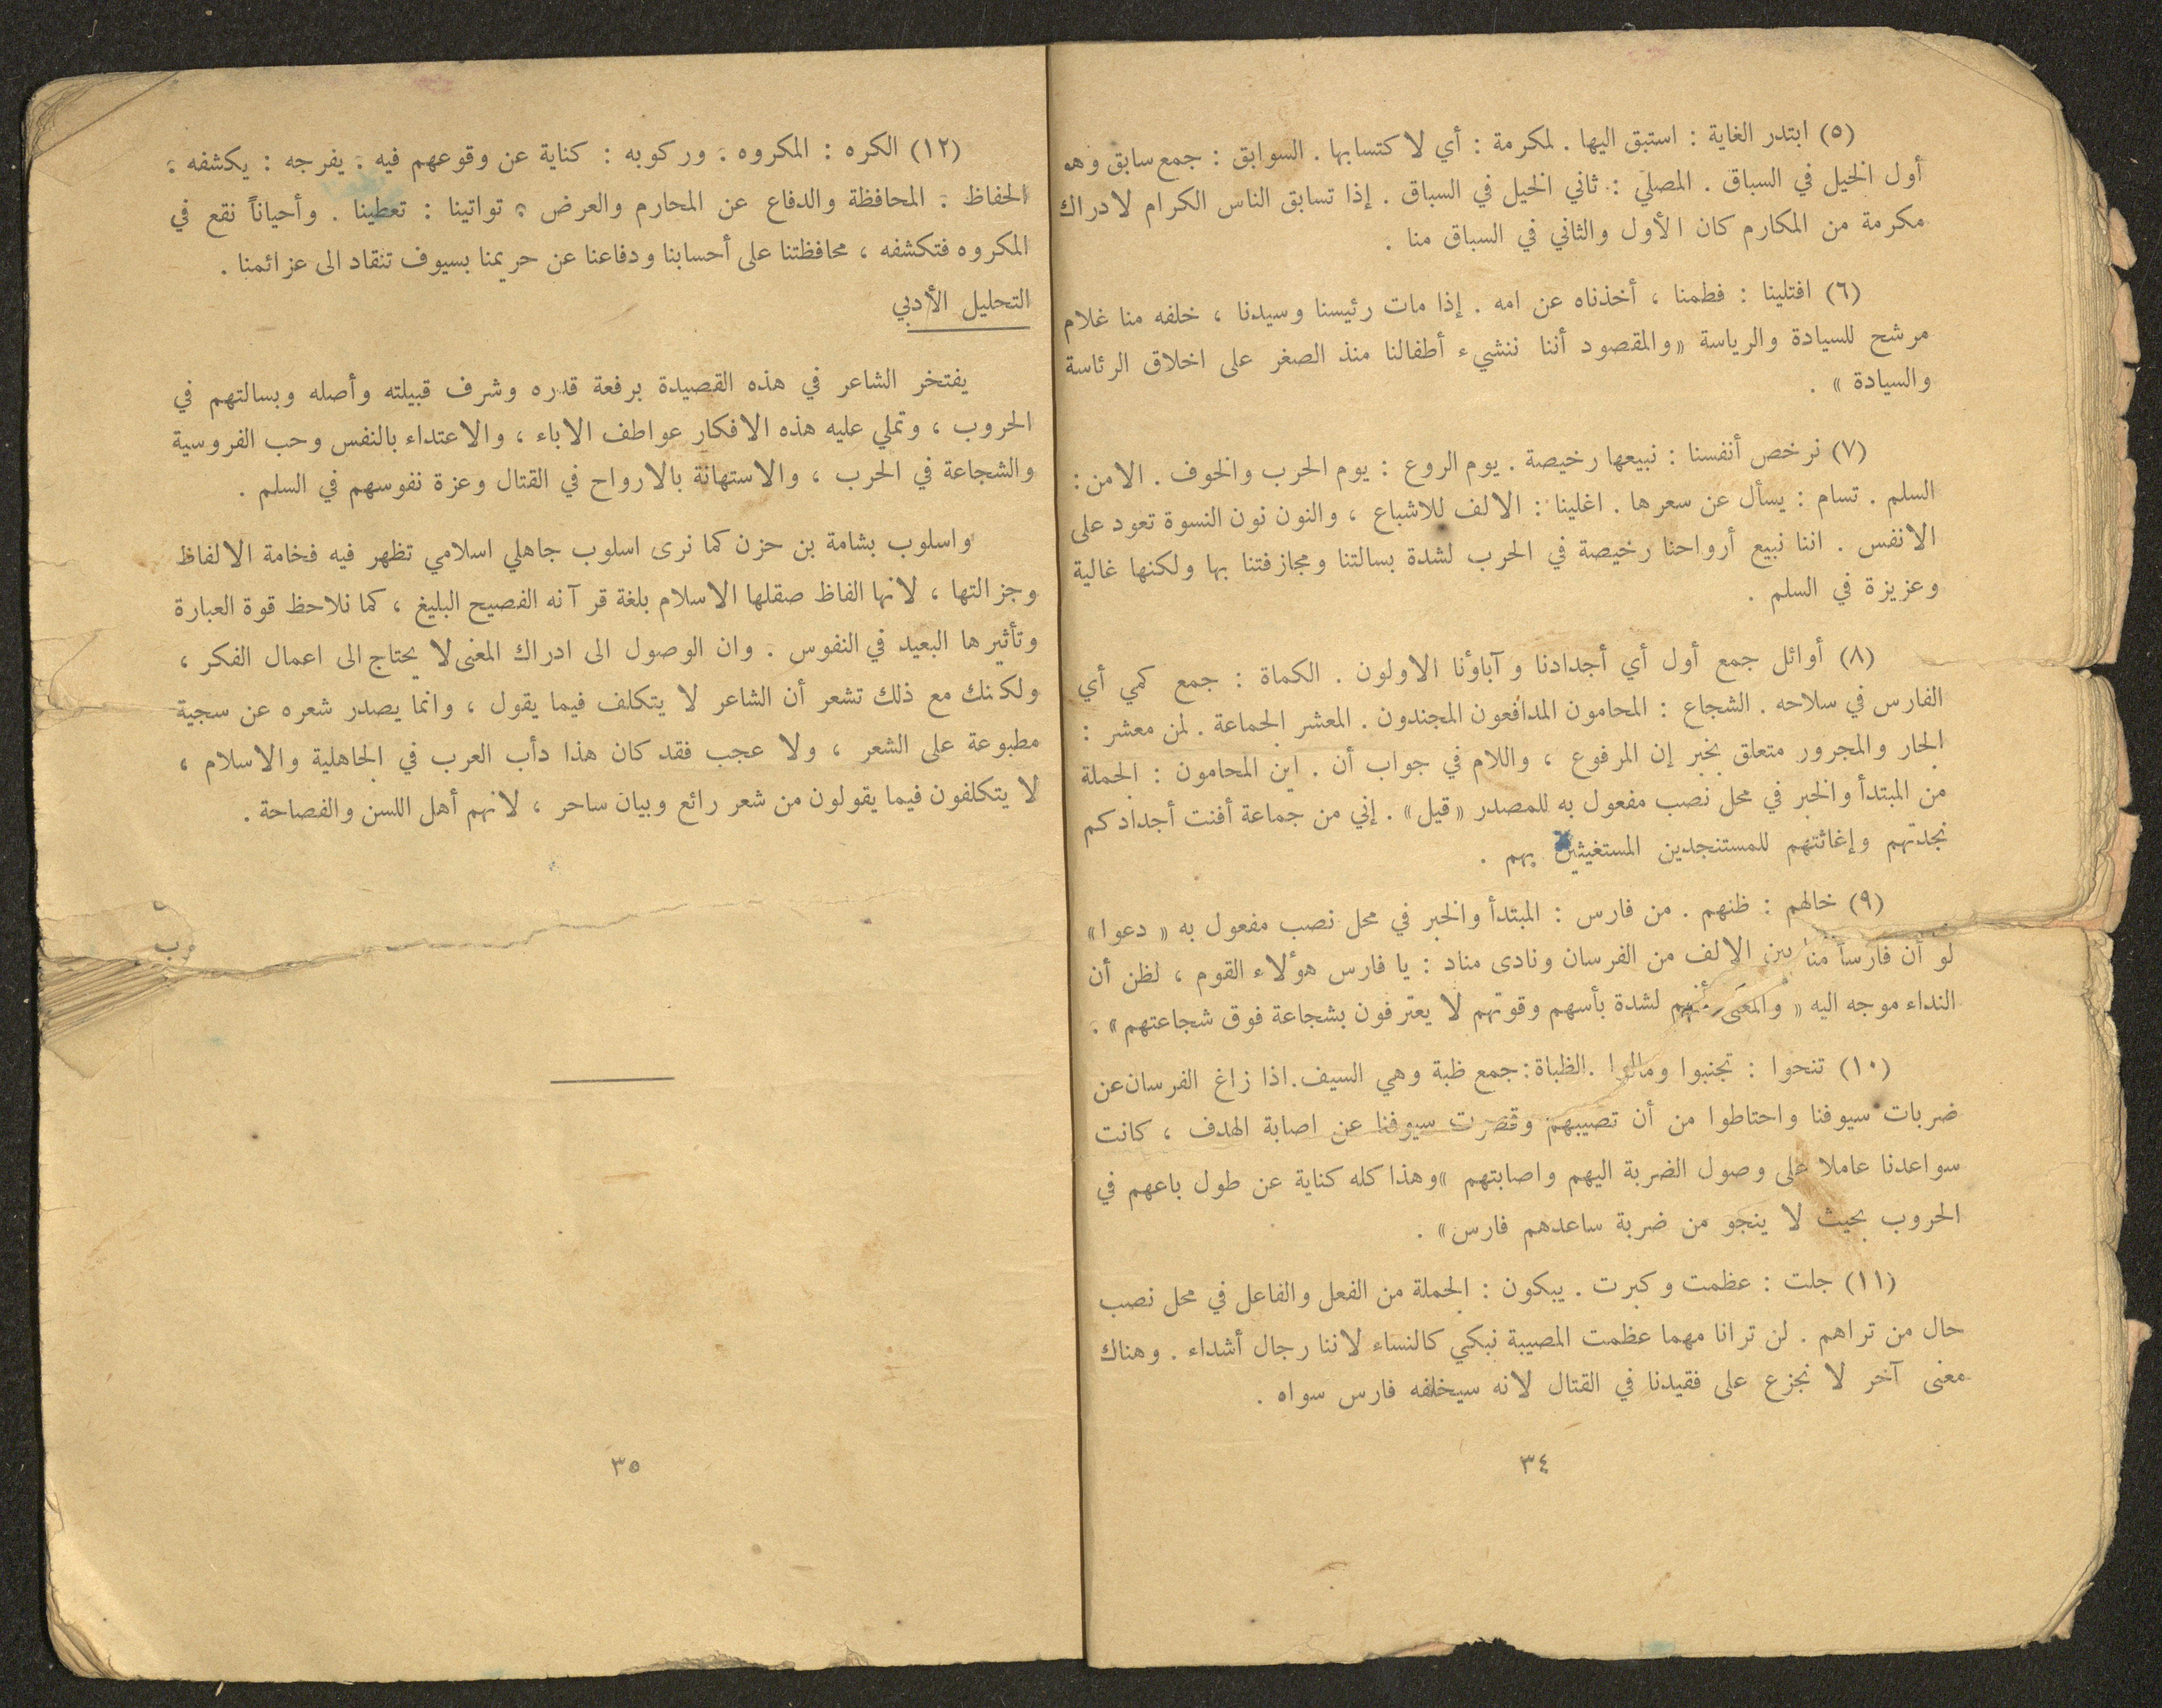 (٥) ابتدر الغاية : استبق اليها . لمكرمة : أي لاكتسابها . السوابق : جمع سابق وهو
أول الخيل في السباق . المصلي : ثاني الخيل في السباق . إذا تسابق الناس الكرام لادراك
مكرمة من المكارم كان الأول والثاني في السباق منا .
(٦) افتلينا : فطمنا ، أخذناه عن امه . إذا مات رئيسنا وسيدنا ، خلفه منا غلام
مرشح للسيادة والرياسة «والمقصود أننا ننشيء أطفالنا منذ الصغر على اخلاق الرئاسة
والسيادة » .
(٧) نرخص أنفسنا : نبيعها رخيصة . يوم الروع : يوم الحرب والخوف . الامن :
السلم . تسام : يسأل عن سعرها . اغلينا : الالف للاشباع ، والنون نون النسوة تعود على
الانفس . اننا نبيع أرواحنا رخيصة في الحرب لشدة بسالتنا ومجازفتنا بها ولكنها غالية
وعزيزة في السلم .
(٨) أوائل جمع أول أي أجدادنا وآباؤنا الاولون . الكماة : جمع كمي أي
الفارس في سلاحه . الشجاع : المحامون المدافعون المجندون . المعشر الجماعة . لمن معشر :
الجار والمجرور متعلق بخبر إن المرفوع ، واللام في جواب أن . اين المحامون : الجملة
من المبتدأ والخبر في محل نصب مفعول به للمصدر «قيل» . إني من جماعة أفنت أجدادكم
نجدتهم وإغاثتهم للمستنجدين المستغيثين بهم .
(٩) خالهم : ظنهم . من فارس : المبتدأ والخبر في محل نصب مفعول به « دعوا»
لو أن فارساً منا بين الالف من الفرسان ونادى مناد : يا فارس هؤلاء القوم ، لظن أن
النداء موجه اليه « والمعنى أنهم لشدة بأسهم وقوتهم لا يعترفون بشجاعة فوق شجاعتهم» .
(١٠) تنحوا : تجنبوا ومالوا . الظباة : جمع ظبة وهي السيف. اذا زاغ الفرسان عن
ضربات سيوفنا واحتاطوا من أن تصيبهم وقصرت سيوفنا عن اصابة الهدف ، كانت
سواعدنا عاملا على وصول الضربة اليهم واصابتهم «وهذا كله كناية عن طول باعهم في
الحروب بحيث لا ينجو من ضربة ساعدهم فارس» .
(١١) جلت : عظمت وكبرت . يبكون : الجملة من الفعل والفاعل في محل نصب
حال من تراهم . لن ترانا مهما عظمت المصيبة نبكي كالنساء لاننا رجال أشداء . وهناك
معنى آخر لا نجزع على فقيدنا في القتال لانه سيخلفه فارس سواه .
٣٤
(١٢) الكره : المكروه . وركوبه : كناية عن وقوعهم فيه . يفرجه : يكشفه .
الحفاظ . المحافظة والدفاع عن المحارم والعرض . تواتينا : تعطينا . وأحياناً نقع في
المكروه فتكشفه ، محافظتنا على أحسابنا ودفاعنا عن حريمنا بسيوف تنقاد الى عزائمنا .
التحليل الأدبي
يفتخر الشاعر في هذه القصيدة برفعة قدره وشرف قبيلته وأصله وبسالتهم في
الحروب ، وتملي عليه هذه الافكار عواطف الاباء ، والاعتداء بالنفس وحب الفروسية
والشجاعة في الحرب ، والاستهانة بالارواح في القتال وعزة نفوسهم في السلم .
واسلوب بشامة بن حزن كما نرى اسلوب جاهلي اسلامي تظهر فيه فخامة الالفاظ
وجزالتها ، لانها الفاظ صقلها الاسلام بلغة قرآنه الفصيح البليغ ، كما نلاحظ قوة العبارة
وتأثيرها البعيد في النفوس . وان الوصول الى ادراك المعنى لا يحتاج الى اعمال الفكر ،
ولكنك مع ذلك تشعر أن الشاعر لا يتكلف فيما يقول ، وانما يصدر شعره عن سجية
مطبوعة على الشعر ، ولا عجب فقد كان هذا دأب العرب في الجاهلية والاسلام ،
لا يتكلفون فيما يقولون من شعر رائع وبيان ساحر ، لانهم أهل اللسن والفصاحة .
٣٥